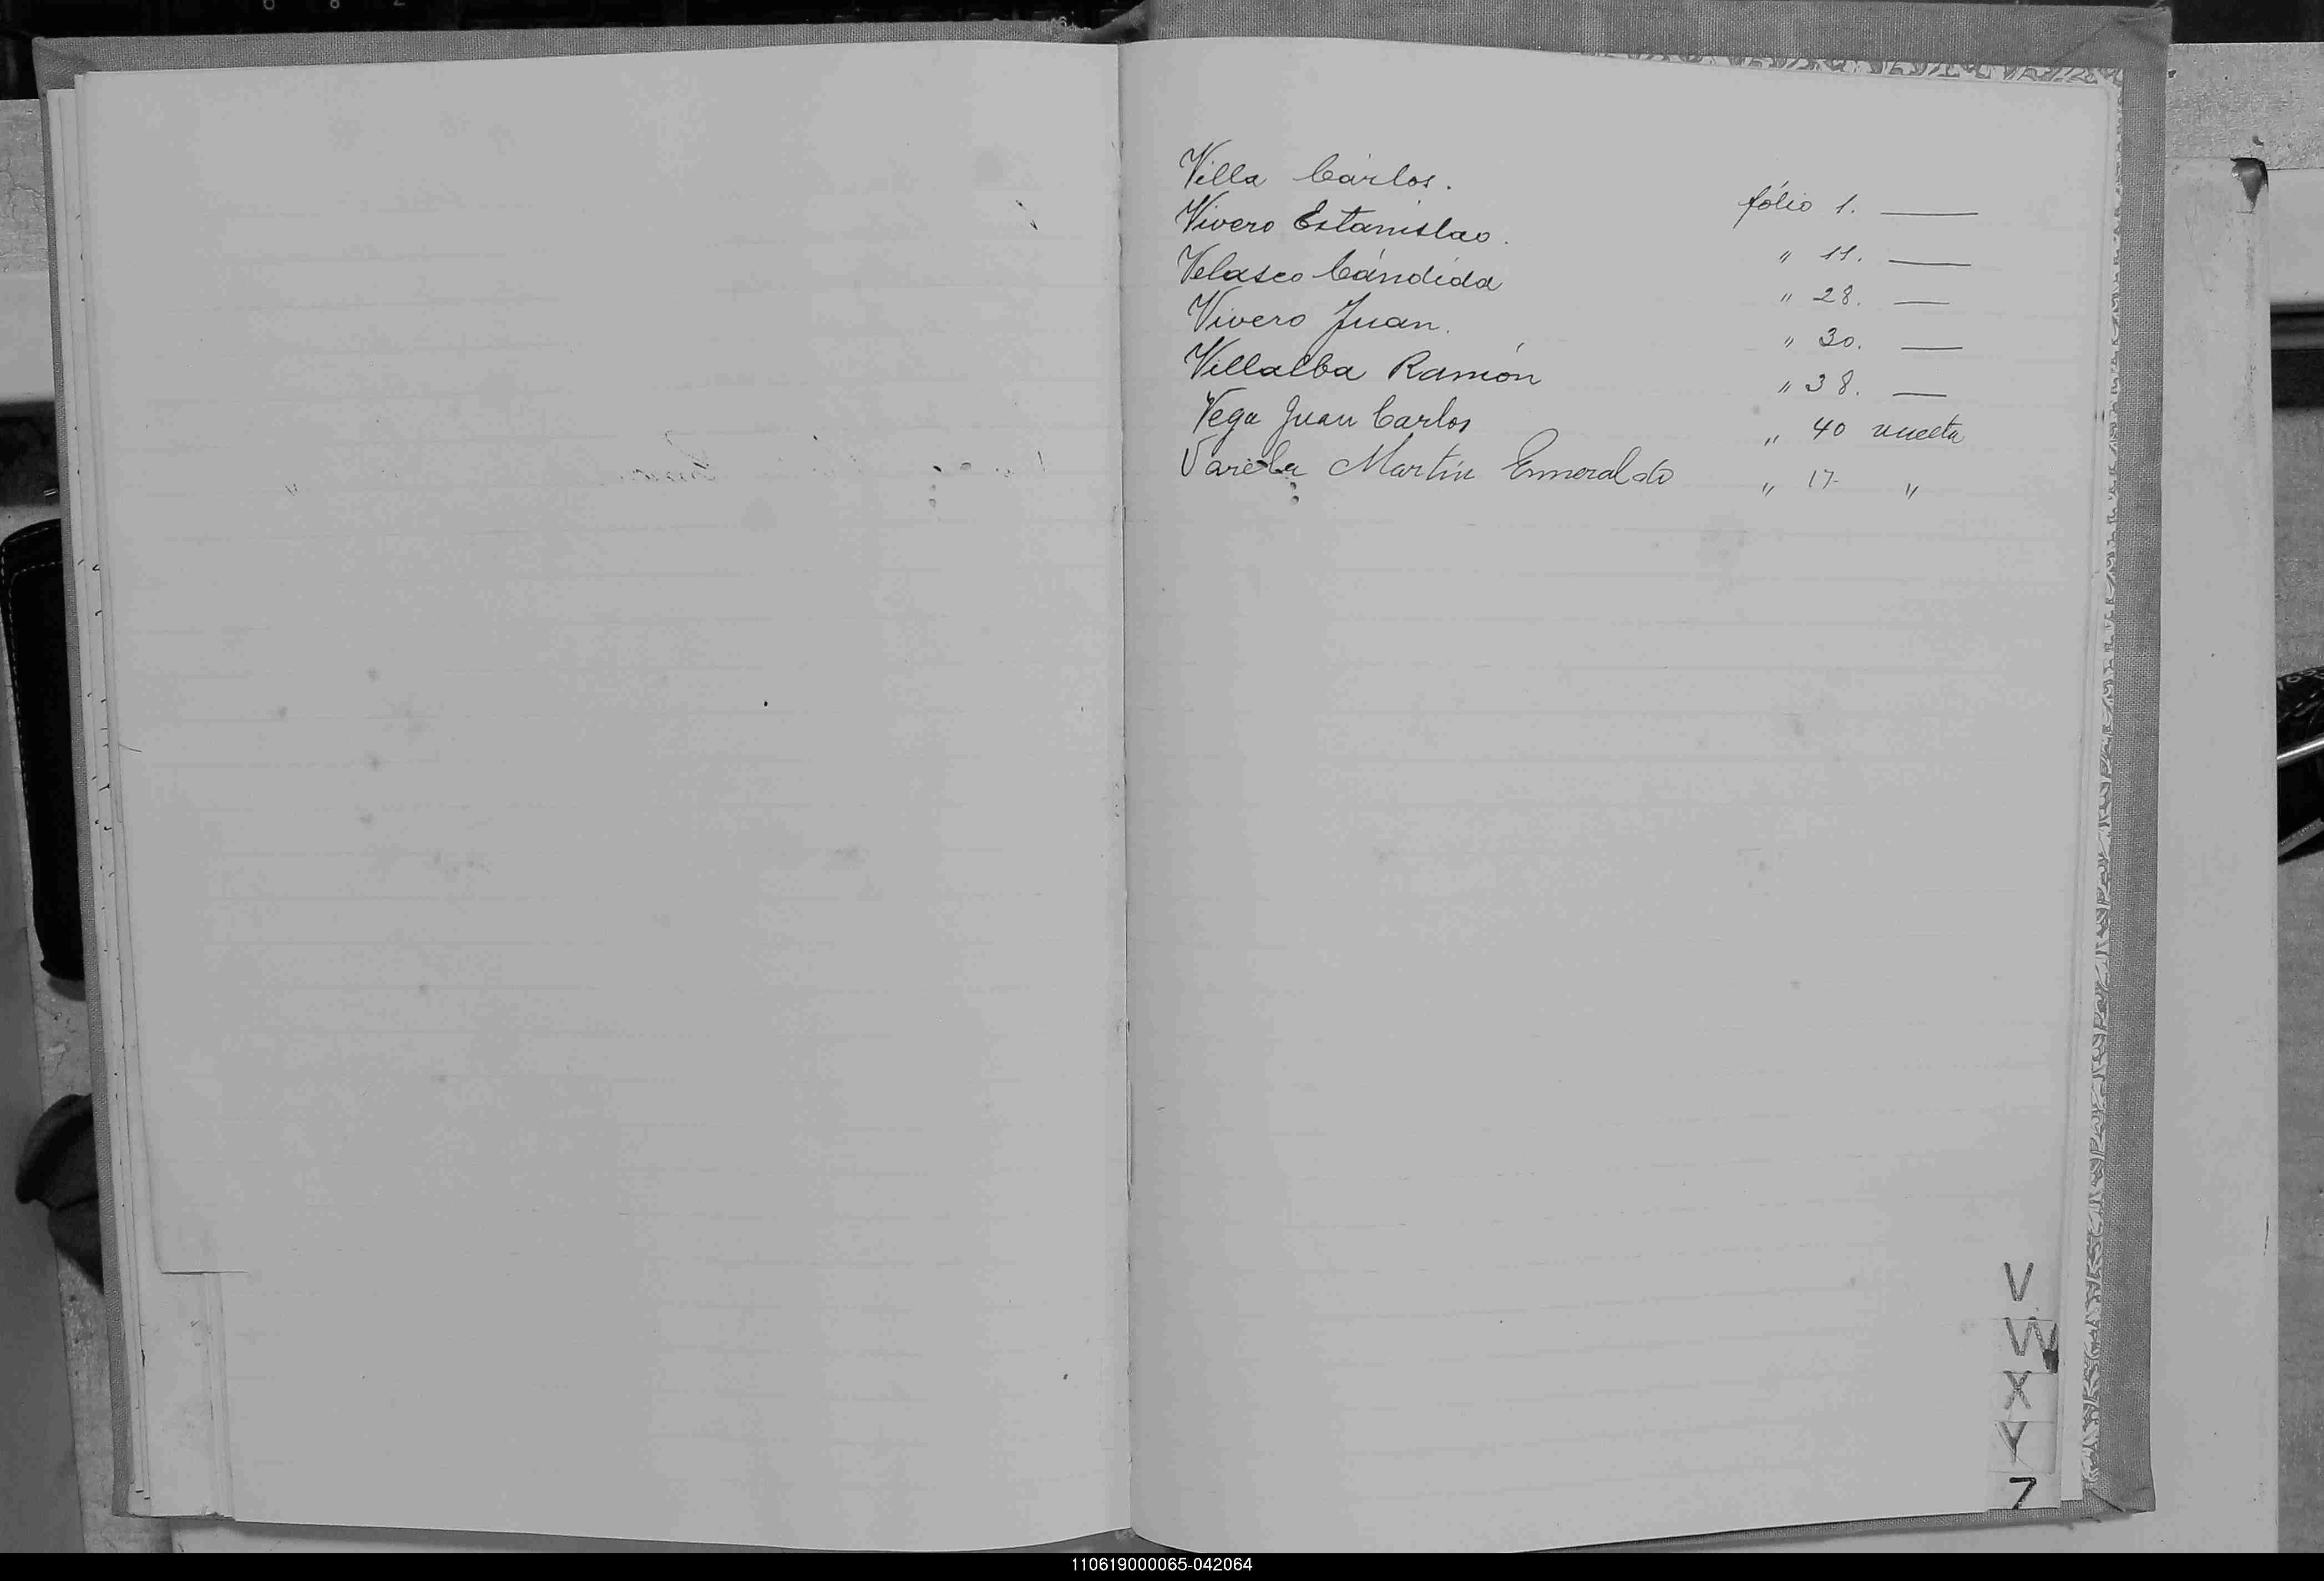 Villa Cárlos. fólio 1. ——
Vivero Estanislao. " 11. ——
Velasco Cándida " 28. ——
Vivero Juan. " 30. ——
Villalba Ramón " 38. ——
Vega Juan Carlos " 40 vuelta
Varela Martín Esmeraldo " 17 "
V
W
X
Y
Z
110619000065-042064